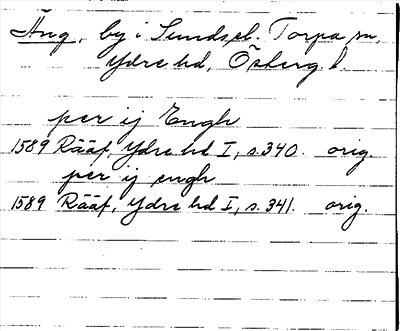 Äng, by i Sundsel. Torpa sn,
Ydre hd, Östergl.
per ij Engh
1589 Rääf, Ydre hd I, s. 340. orig
per ij engh
1589 Rääf, Ydre hd I, s. 341. orig.